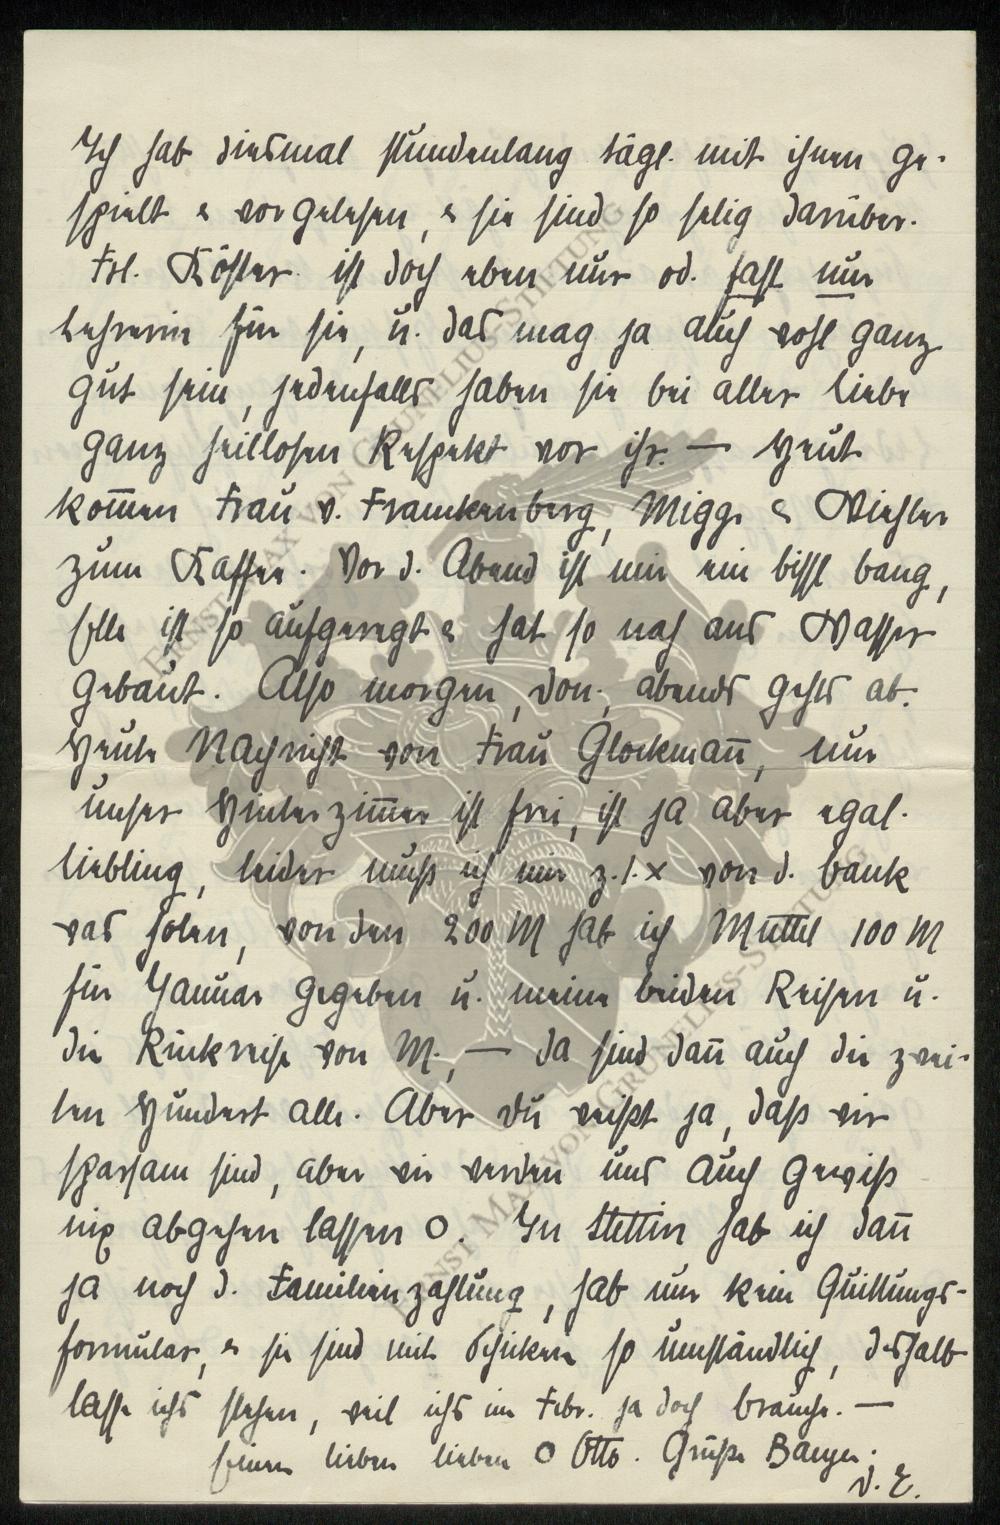 Ich hab diesmal stundenlang tägl. mit ihnen ge-
spielt & vorgelesen, & sie sind so selig darüber.
Frl. Köster ist doch eben nur od. fast nur
Lehrerin für sie, u. das mag ja auch wohl ganz
gut sein, jedenfalls haben sie bei aller Liebe
ganz heillosen Respekt vor ihr. — Heut
kom̅en Frau v. Franckenberg, Migge & Wiehler
zum Kaffee. Vor d. Abend ist mir ein bissl bang,
Elle ist so aufgeregt & hat so nah ans Wasser
gebaut. Also morgen, Don., abends gehts ab.
Heute Nachricht von Frau Glockman̅, nur
unser Hinterzim̅er ist frei, ist ja aber egal.
Liebling, leider muß ich mir z. 1. x von d. Bank
was holen, von den 200 M hab ich Muttel 100 M
für Januar gegeben u. meine beiden Reisen u.
die Rückreise von M., — da sind dan̅ auch die zwei-
ten Hundert alle. Aber Du weißt ja, daß wir
sparsam sind, aber wir werden uns auch gewiß
nix abgehen lassen O. In Stettin hab ich dan̅
ja noch d. Familienzahlung, hab nur kein Quittungs-
formular, & sie sind mit Schicken so umständlich, deshalb
lasse ichs stehen, weil ichs im Febr. ja doch brauche. —
Einen lieben lieben O Otto. Grüße
D. E.
ERNST MAX VON GRUNELIUS-STIFTUNG
ERNST MAX VON GRUNELIUS-STIFTUNG